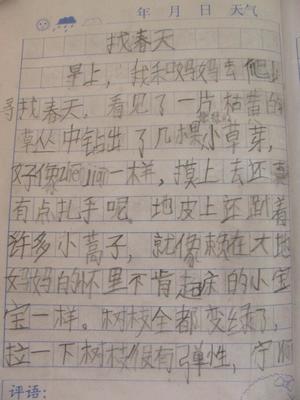 年 月 日 天气
找春天
早上，我和妈妈去爬山
寻找春天，看见了一片枯黄的
草丛中钻出了几棵小草芽，
好像 jian 一样，摸上去还真
有点扎手呢。地皮上还趴着
许多小蒿子，就像赖在大地
妈妈的怀里不肯起床的小宝
宝一样。树枝全都变绿了，
拉一下树枝很有弹性，宁
评语：